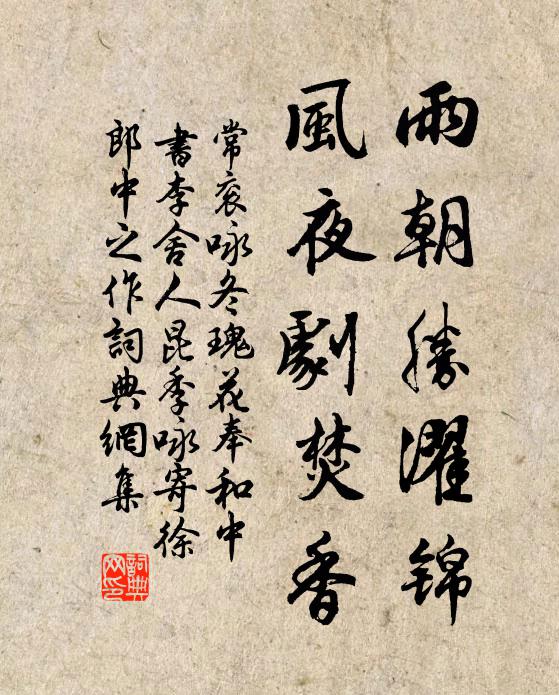 雨朝勝濯錦
風夜劇焚香
常衮咏冬瑰花奉和中
書李舍人昆季咏寄徐
郎中之作詞典網集
詞典
网印